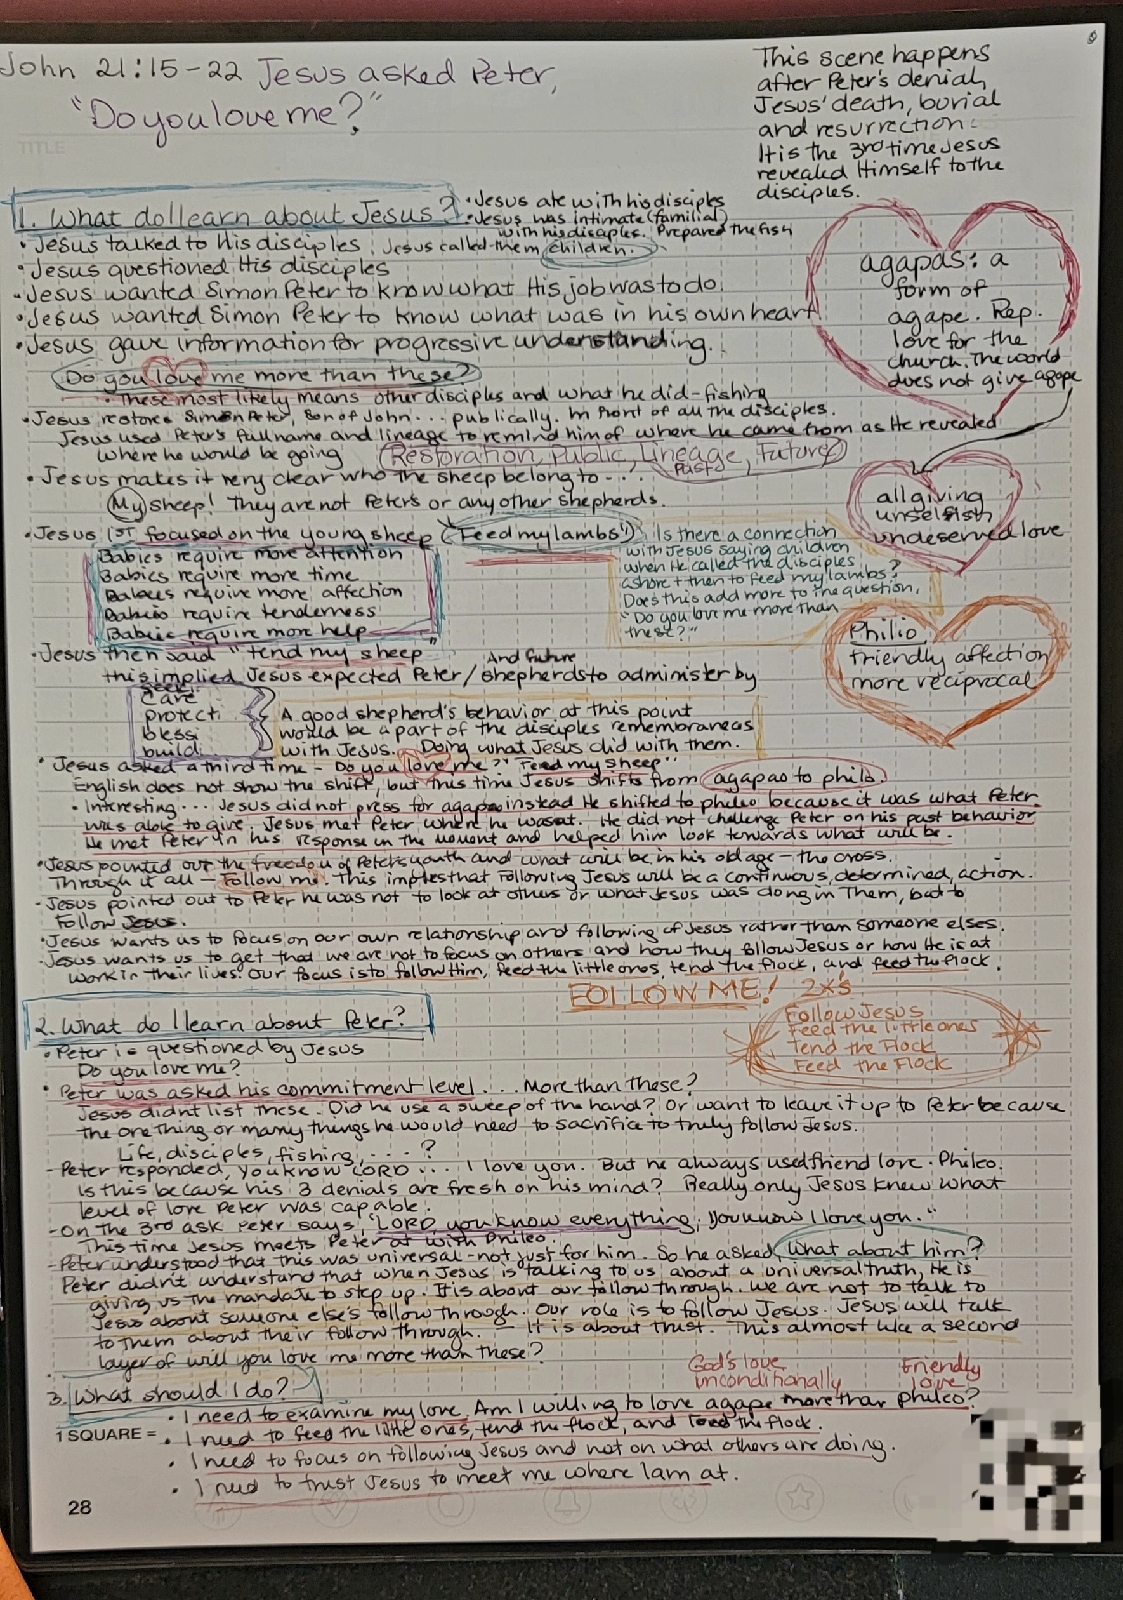 John 21:15-22 Jesus asked Peter,
"Do you love me?"
This scene happens
after Peter's denial,
Jesus' death, burial
and resurrection.
It is the 3rd time Jesus
revealed Himself to the
disciples.
TITLE
1. What do I learn about Jesus?
• Jesus ate with his disciples
• Jesus was intimate (familial)
with his disciples. Prepared the fish
• Jesus talked to His disciples; Jesus called them children.
• Jesus questioned His disciples
• Jesus wanted Simon Peter to know what His job was to do.
• Jesus wanted Simon Peter to know what was in his own heart
• Jesus gave information for progressive understanding.
Do you love me more than these?
• These most likely means other disciples and what he did - fishing
• Jesus restores Simon Peter, Son of John... publically. In front of all the disciples.
Jesus used Peter's full name and lineage to remind him of where he came from as He revealed
where he would be going (Restoration, Public, Lineage, Future)
Past
• Jesus makes it very clear who the sheep belong to - . . .
My sheep! They are not Peter's or any other shepherds.
agapas: a
form of
agape. Rep.
love for the
church. The world
does not give agape
all giving
unselfish
undeserved love
• Jesus 1st focused on the young sheep ("Feed my lambs")
Babies require more attention
Babies require more time
Babies require more affection
Babies require tenderness
Babies require more help
Is there a connection
with Jesus saying children
when He called the disciples
ashore + then to feed my lambs?
Does this add more to the question,
"Do you love me more than
these?"
Philio
friendly affection
more reciprocal
• Jesus then said "tend my sheep"
And future
this implied Jesus expected Peter/shepherds to administer by
Care
protect
bless
build
A good shepherd's behavior at this point
would be a part of the disciples remembrances
with Jesus. Doing what Jesus did with them.
• Jesus asked a third time - Do you love me?" "Feed my sheep"
English does not show the shift, but this time Jesus shifts from agapao to philo.
• Interesting... Jesus did not press for agapao instead He shifted to phileo because it was what Peter
was able to give. Jesus met Peter where he was at. He did not challenge Peter on his past behavior
He met Peter in his response in the moment and helped him look towards what will be.
• Jesus pointed out the freedom of Peter's youth and what will be in his old age - the cross.
Through it all - Follow me. This implies that Following Jesus will be a continuous, determined, action.
- Jesus pointed out to Peter he was not to look at others or what Jesus was doing in Them, but to
Follow Jesus.
• Jesus wants us to focus on our own relationship and following of Jesus rather than someone elses.
• Jesus wants us to get that we are not to focus on others and how they follow Jesus or how He is at
work in their lives. Our focus is to follow Him, feed the little ones, tend the flock, and feed the flock.
FOLLOW ME! 2x's
Follow Jesus
Feed the little ones
Tend the Flock
Feed the Flock
2. What do I learn about Peter?
• Peter is questioned by Jesus
Do you love me?
• Peter was asked his commitment level . . . More than these?
Jesus didn't list these. Did he use a sweep of the hand? Or want to leave it up to Peter because
the one thing or many things he would need to sacrifice to truly follow Jesus.
Life, disciples, fishing, . . . ?
- Peter responded, you know LORD . . . I love you. But he always used friend love. Phileo.
Is this because his 3 denials are fresh on his mind? Really only Jesus knew what
level of love Peter was capable.
- On the 3rd ask Peter says, "LORD, you know everything, you know I love you."
This time Jesus meets Peter at with Phileo.
- Peter understood that this was universal - not just for him. So he asked, What about him?
Peter didn't understand that when Jesus is talking to us about a universal truth, He is
giving us the mandate to step up. It is about our follow through. We are not to talk to
Jesus about someone else's follow through. Our role is to follow Jesus. Jesus will talk
to them about their follow through. - It is about trust. This almost like a second
layer of will you love me more than these?
God's love
unconditionally
Friendly
love
3. What should I do?
• I need to examine my love. Am I willing to love agape more than phileo?
1 SQUARE =
• I need to feed the little ones, tend the flock, and feed the flock.
• I need to focus on following Jesus and not on what others are doing.
• I need to trust Jesus to meet me where I am at.
28